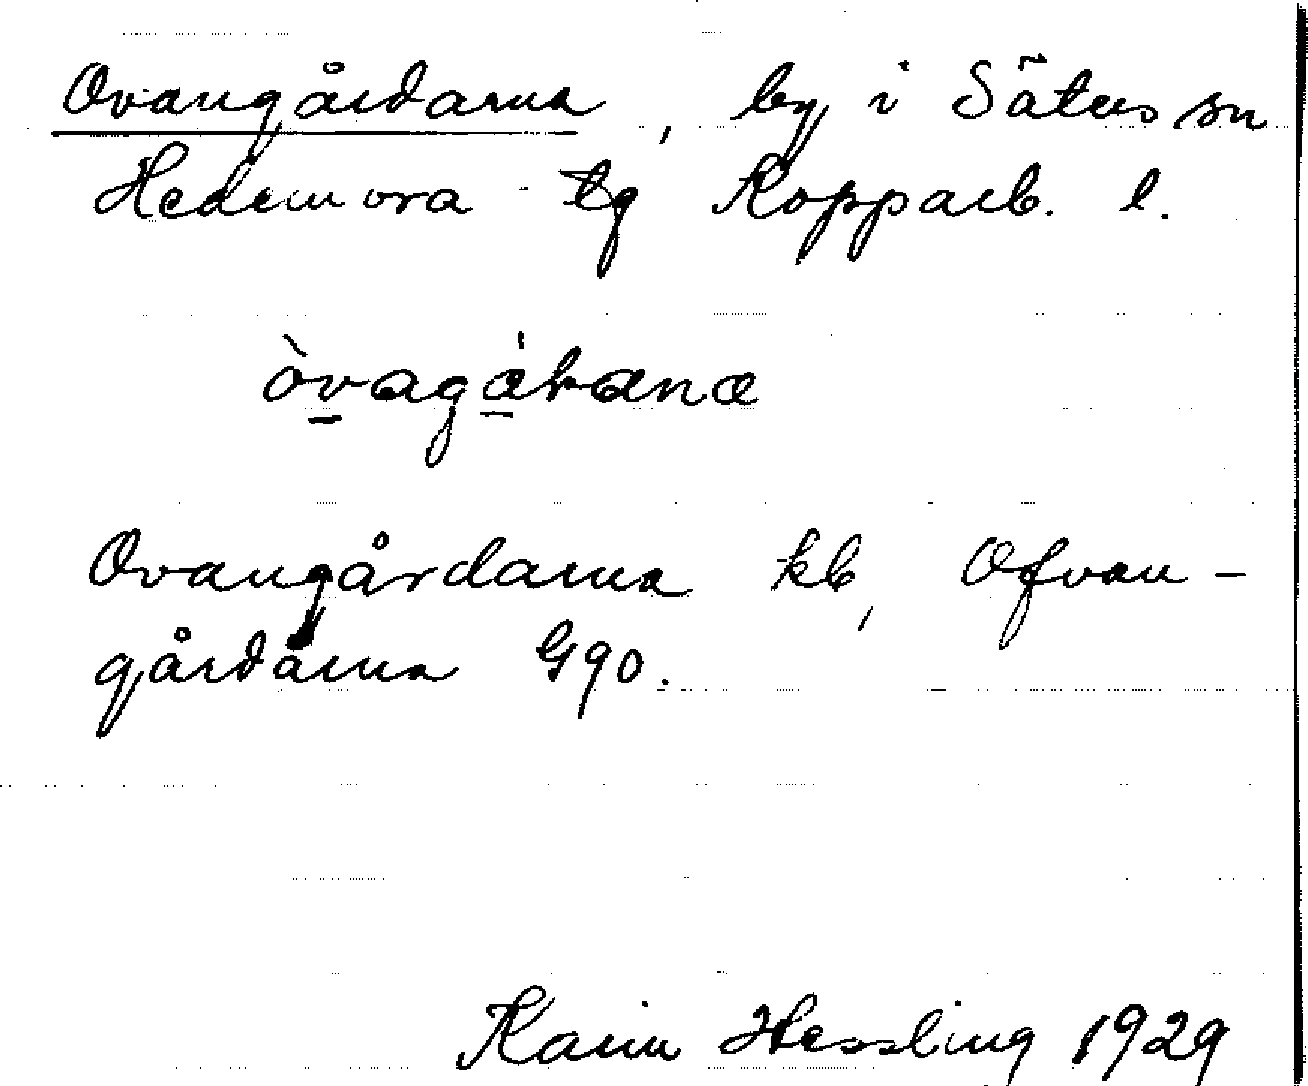 Ovangårdarna, by i Säters sn
Hedemora tg Kopparb. l.
Ovangårdarna kb, Ofvan-
gårdarna G90.
Karin Hessling 1929